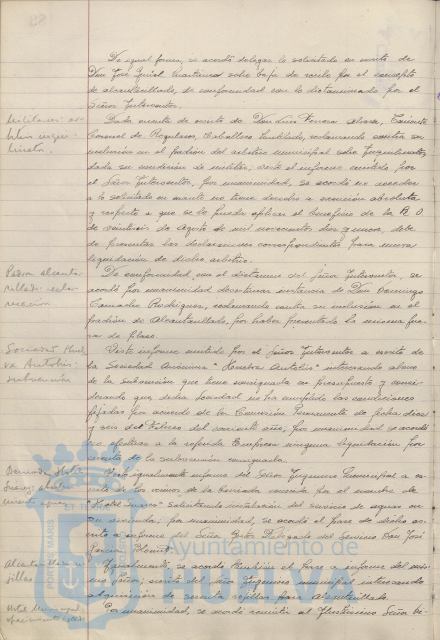 De igual forma, se acordó delegar lo solicitado en escrito de
Don José Quiel sobre baja de recibo por el concepto
de alcantarillado, de conformidad con lo dictaminado por el
Señor Interventor.
Dada cuenta de escrito de Don Luis
Coronel de Regulares, Caballero Mutilado, reclamando contra su
inclusión en el padrón del arbitrio municipal sobre
dada su condición de militar; visto el informe emitido por
el Señor Interventor, por unanimidad, se acordó no acceder
a lo solicitado en cuanto no tiene derecho a exención absoluta
y respecto a que se le pueda aplicar el beneficio de la R. O.
de de Agosto de mil novecientos diez y nueve, debe
de presentar las declaraciones correspondientes para nueva
liquidación de dicho arbitrio.
De conformidad con el dictamen del señor Interventor, se
acordó por unanimidad desestimar instancia de Don Domingo
Camacho Rodríguez, reclamando contra su inclusión en el
padrón de Alcantarillado, por haber presentado la misma fue-
ra de plazo.
Visto informe emitido por el Señor Interventor a escrito de
la Sociedad Anónima "Huelva interesando abono
de la subvención que tiene consignada en presupuesto y consi-
derando que dicha Sociedad no ha cumplido las condiciones
fijadas por acuerdo de la Comisión Permanente de fecha diez
y seis de Febrero del corriente año, por unanimidad se acordó
no efectuar a la referida Empresa ninguna liquidación por
cuenta de la subvención consignada.
Visto igualmente informe del Señor Ingeniero Municipal a es-
crito de los vecinos de la barriada conocida por el nombre de
solicitando instalación del servicio de aguas en
su barriada; por unanimidad, se acordó el pase de dicho es-
crito a informe del Señor Gestor Delegado del Servicio Don José
García
Igualmente, se acordó también el pase a informe del mis-
mo Gestor, escrito del Señor Ingeniero municipal interesando
adquisición de rejillas para Alcantarillado.
Por unanimidad, se acordó remitir al Ilustrísimo Señor De-
Padrón alcanta-
rillado: recla-
mación
Sociedad Huel-
va
subvención
Alcantarillado re-
jillas
Ayuntamiento de